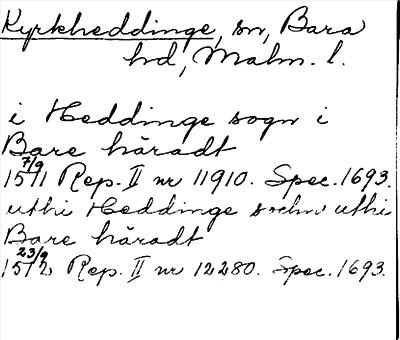 Kyrkheddinge, sn, Bara
hd, Malm. l.
i Heddinge sogn i
Bare häradt
7/9
1511 Rep. II nr 11910. Spec. 1693.
uthi Heddinge sochn uthi
Bare häradt
23/9
1512 Rep. II nr 12280. Spec. 1693.